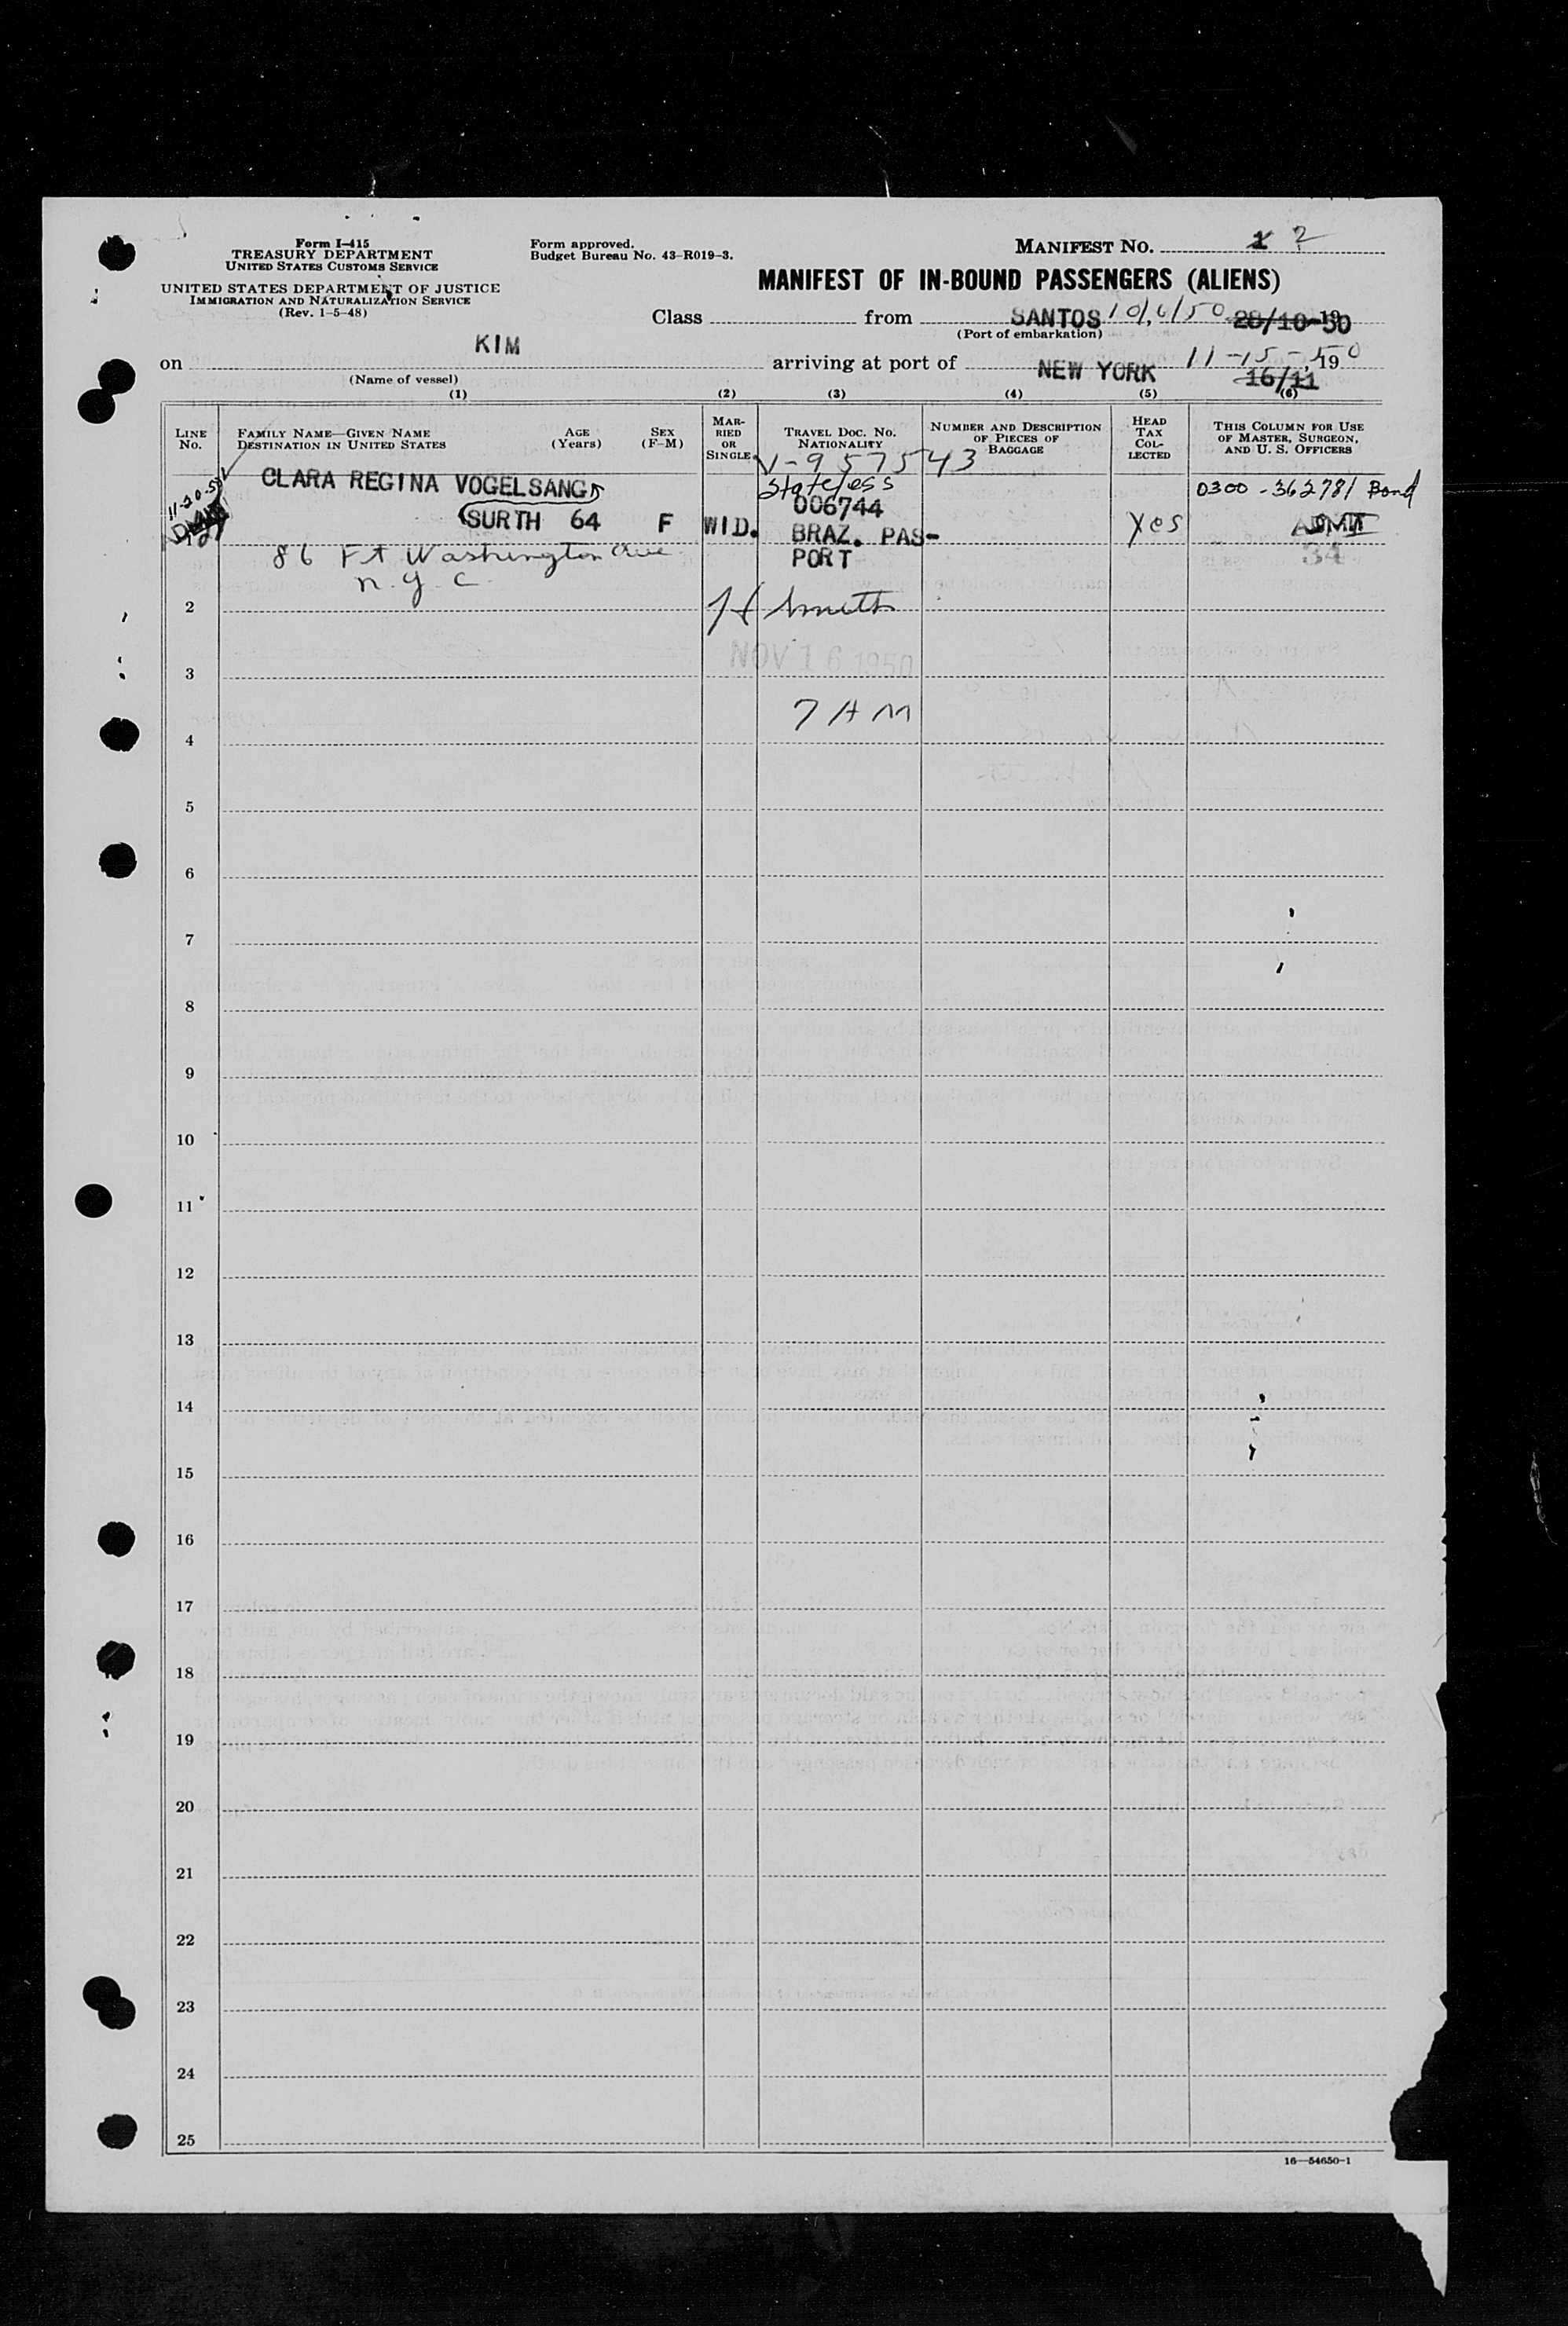 Form I-415
TREASURY DEPARTMENT
UNITED STATES CUSTOMS SERVICE
UNITED STATES DEPARTMENT OF JUSTICE
IMMIGRATION AND NATURALIZATION SERVICE
(Rev. 1-5-48)
Form approved.
Budget Bureau No. 43-R019-3.
MANIFEST NO. 1 2
MANIFEST OF IN-BOUND PASSENGERS (ALIENS)
Class from SANTOS 28/10-50
(Port of embarkation)
on KIM arriving at port of NEW YORK 11-15-50, 19
(Name of vessel)
16/11
(1) (2) (3) (4) (5) (6)
LINE No.
FAMILY NAME—GIVEN NAME
DESTINATION IN UNITED STATES
AGE (Years)
SEX (F-M)
MARRIED OR SINGLE
TRAVEL DOC. NO. NATIONALITY
NUMBER AND DESCRIPTION OF PIECES OF BAGGAGE
HEAD TAX COLLECTED
THIS COLUMN FOR USE OF MASTER, SURGEON, AND U. S. OFFICERS
V-957543
CLARA REGINA VOGELSANG Stateless 0300-362781 Bond
11-20-50
006744
SURTH 64 F WID. BRAZ. PAS- Yes ADMIT
86 Ft Washington Ave PORT 34
N.Y.C.
2 Smith
NOV 16 1950
3
7 AM
4
5
6
7
8
9
10
11
12
13
14
15
16
17
18
19
20
21
22
23
24
25
16—54650-1